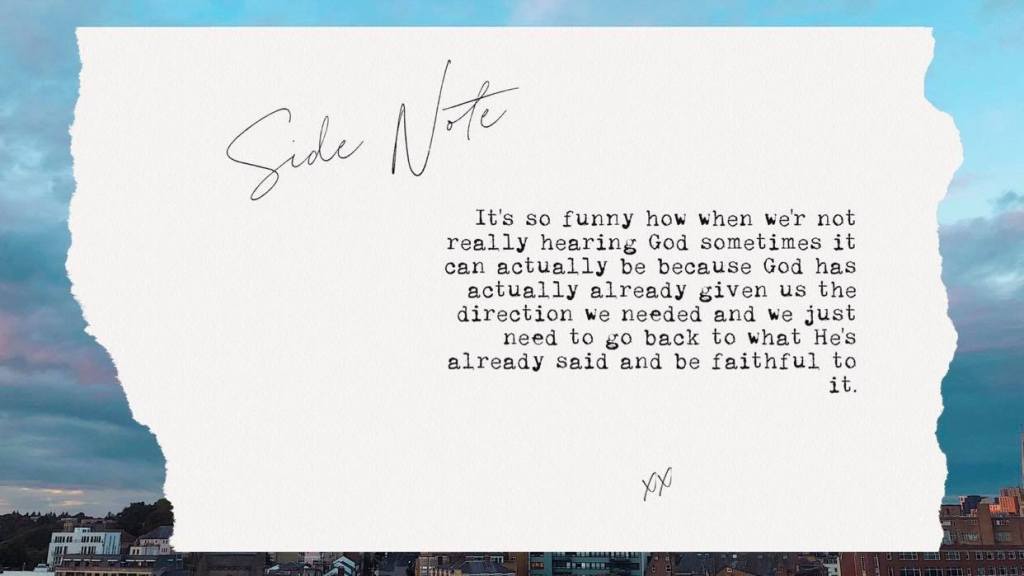 Side Note
It's so funny how when we'r not
really hearing God sometimes it
can actually be because God has
actually already given us the
direction we needed and we just
need to go back to what He's
already said and be faithful to
it.
xx